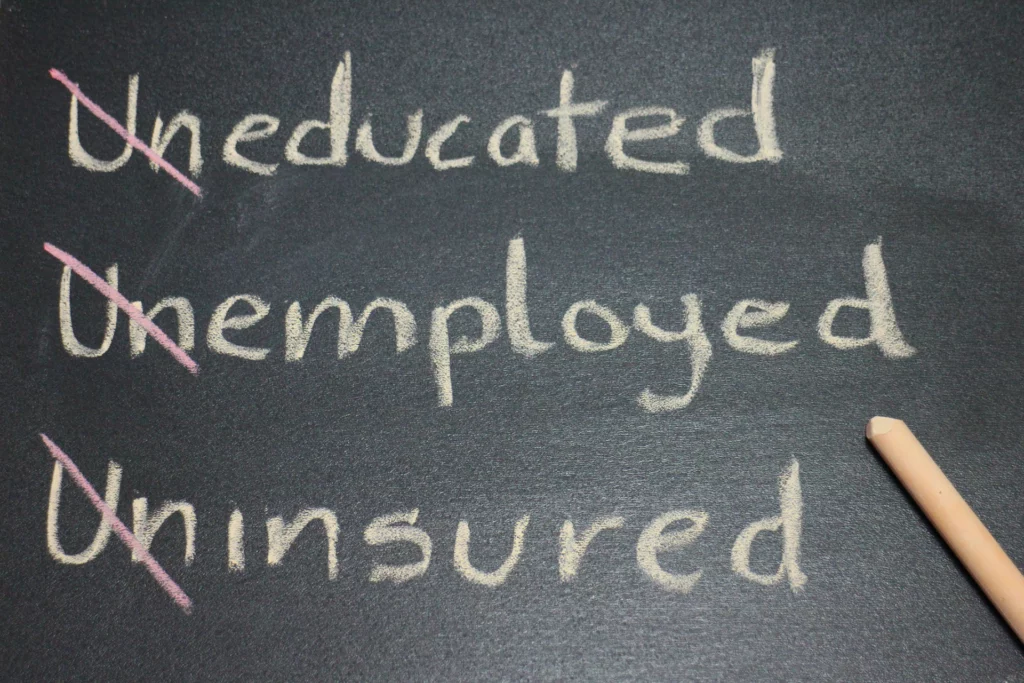 Uneducated
Unemployed
Uninsured